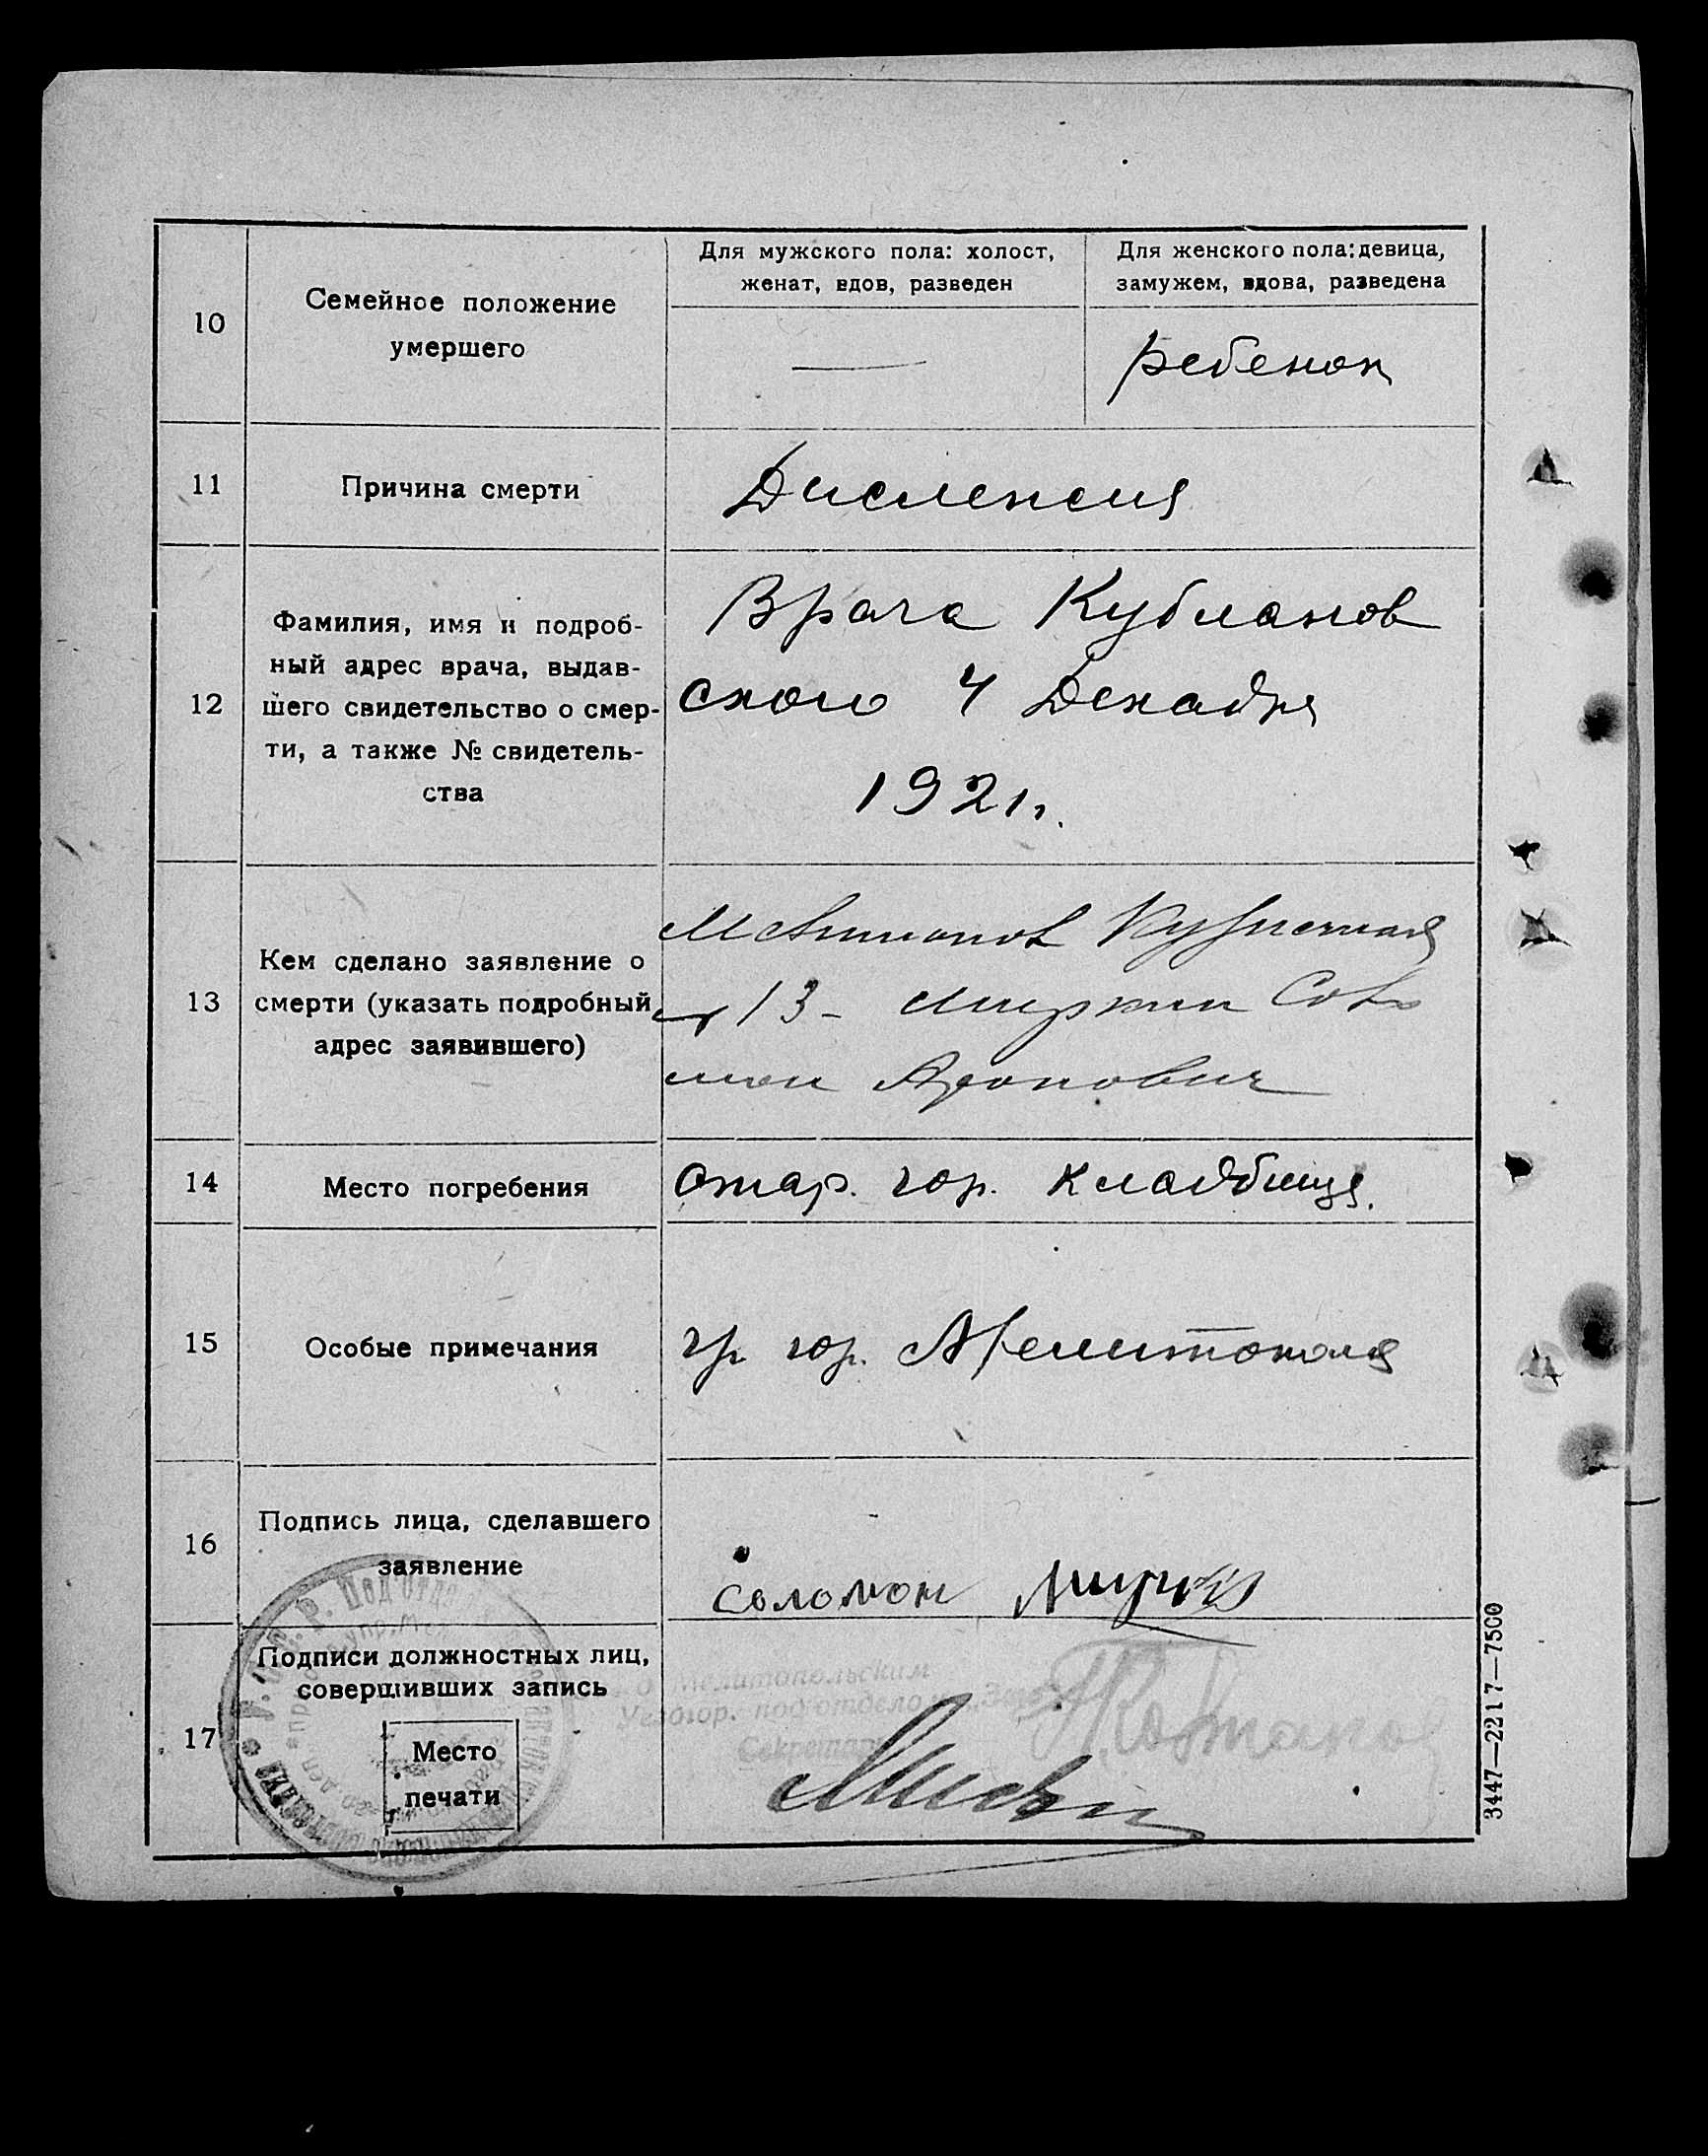 10
Семейное положение
умершего
Для мужского пола: холост,
женат, вдов, разведен
Для женского пола: девица,
замужем, вдова, разведена
—
ребенок
11
Причина смерти
12
Фамилия, имя и подроб-
ный адрес врача, выдав-
шего свидетельство о смер-
ти, а также № свидетель-
ства
Врача Кубланов
ского 4 Декабря
1921 г.
13
Кем сделано заявление о
смерти (указать подробный
адрес заявившего)
Кузнечная
13 - Миркин Соло
мон Аронович
14
Место погребения
стар. гор. кладбище.
15
Особые примечания
гр гор. Мелитополя
16
Подпись лица, сделавшего
заявление
Соломон Миркин
17
Подписи должностных лиц,
совершивших запись
Место
печати
Мелитопольским
Секретарь
3447—2217—7500